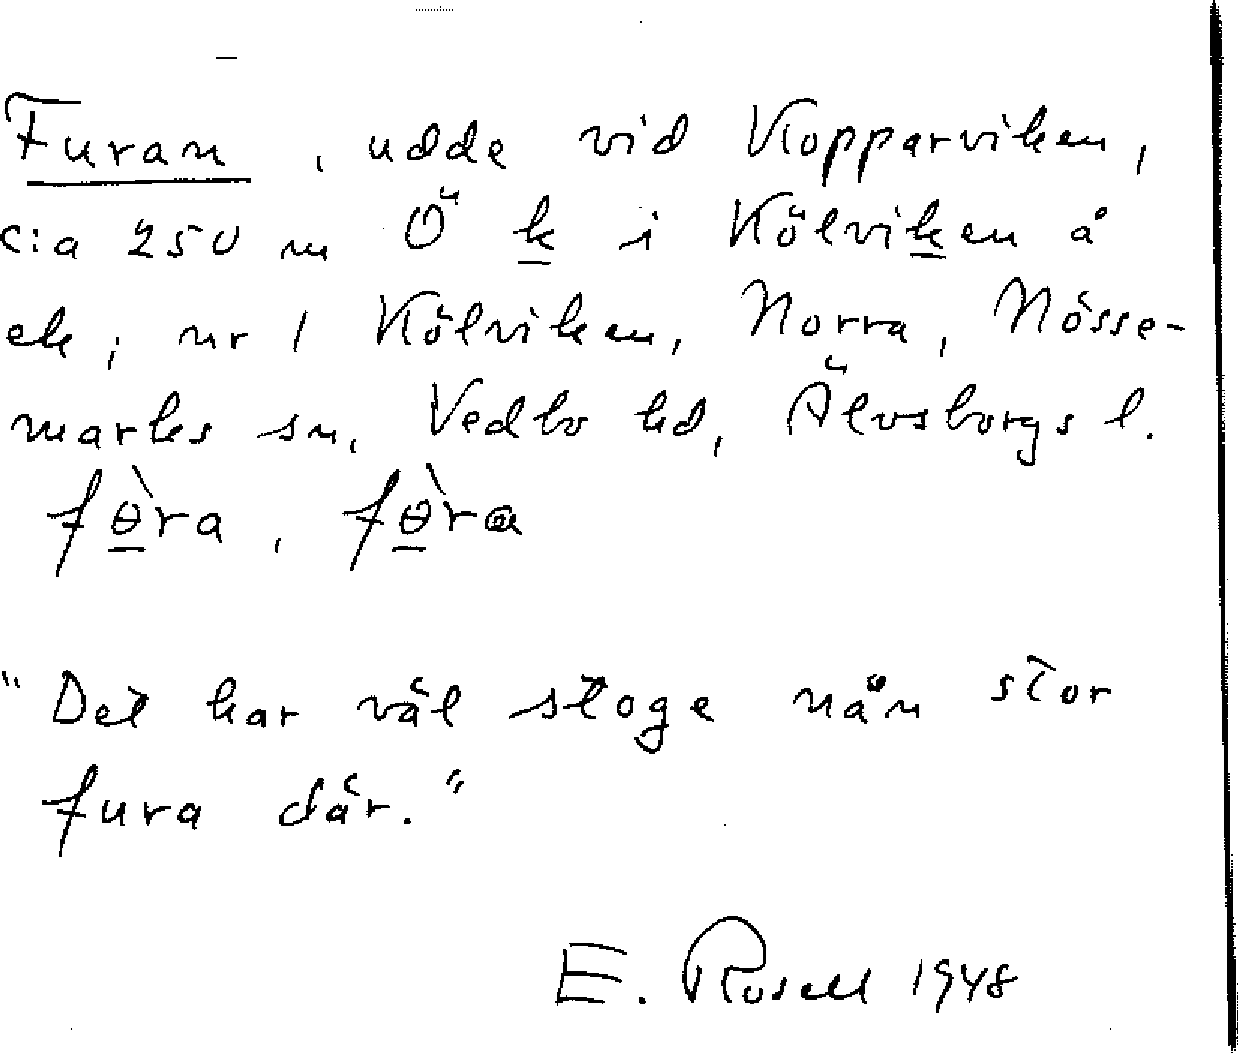 Furan, udde vid Kopparviken,
c:a 250 m Ö k i Kölviken å
ek; nr 1 Kölviken, Norra, Nösse-
marks sn, Vedbo hd, Älvsborgs l.
fɵ̀ra, fɵ̀ra
"Det har väl stoge nån stor
fura där."
E. Rosell 1948